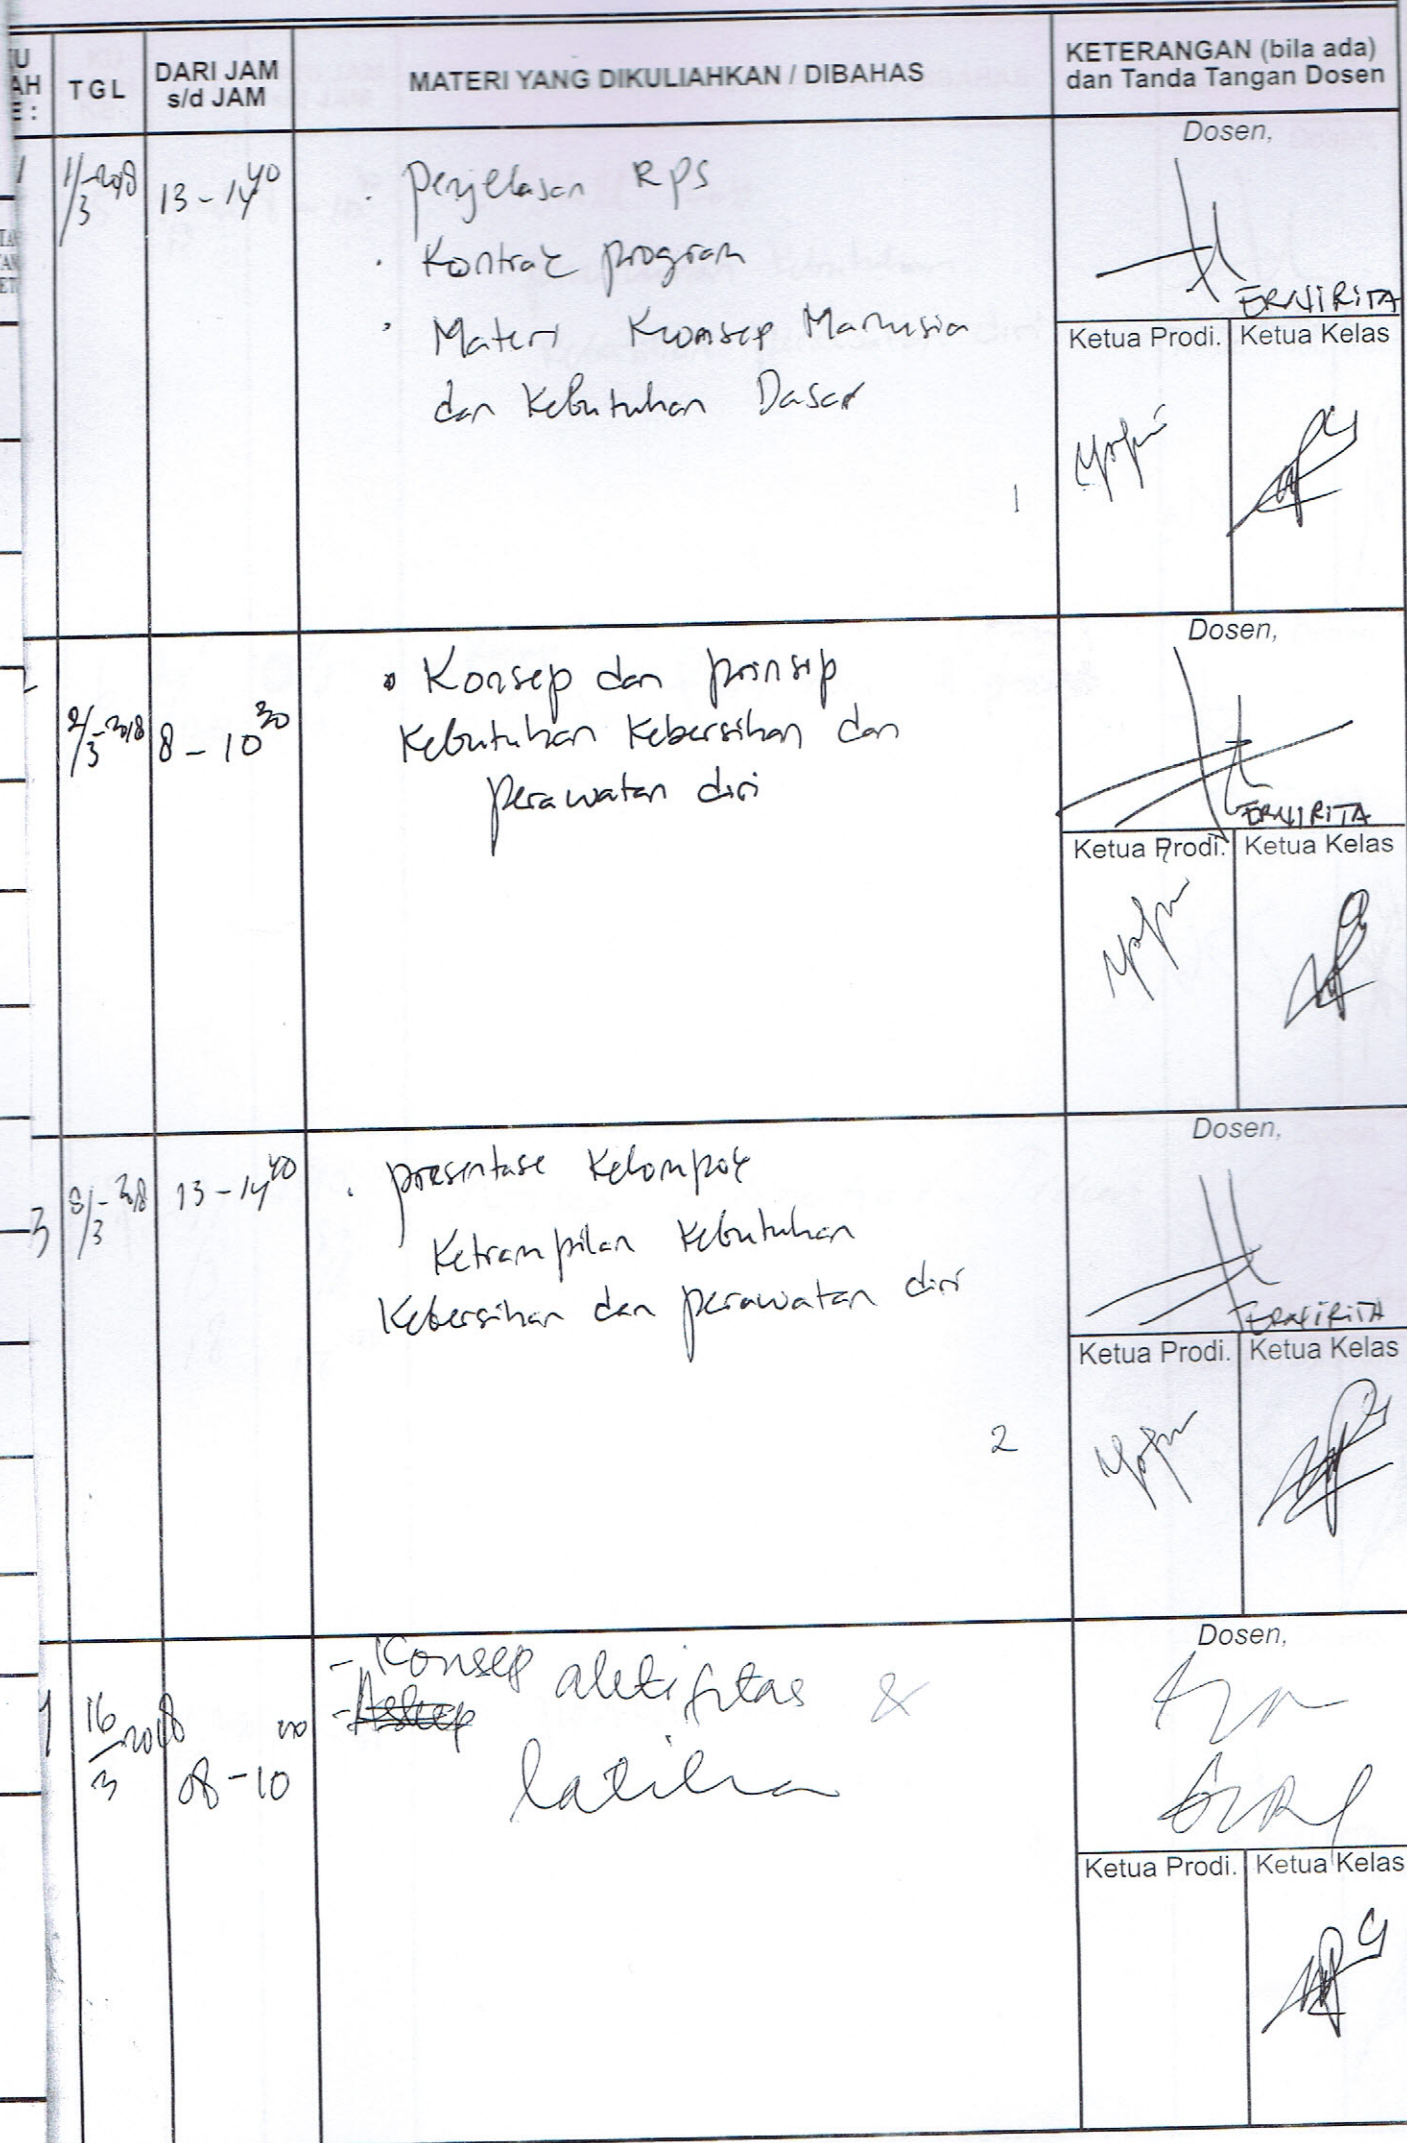 TGL
DARI JAM
s/d JAM
MATERI YANG DIKULIAHKAN / DIBAHAS
KETERANGAN (bila ada)
dan Tanda Tangan Dosen
1
1/3-2018
13 - 14 40
. Penjelasan RPS
. Kontrak program
. Materi Kionsep Manusia
dan Kebutuhan Dasar
1
Dosen,
ERNIRITA
Ketua Prodi. Ketua Kelas
2/3-2018
8 - 10 30
• Konsep dan prinsip
Kebutuhan Kebersihan dan
perawatan diri
Dosen,
ERNIRITA
Ketua Prodi. Ketua Kelas
3
8/3-2018
13 - 14 40
. presentase Kelompok
Ketrampilan Kebutuhan
Kebersihan dan perawatan diri
2
Dosen,
ERNIRITA
Ketua Prodi. Ketua Kelas
16/3 2018
08 - 10 00
- Konsep aktifitas &
- Askep
latihan
Dosen,
Ketua Prodi. Ketua Kelas